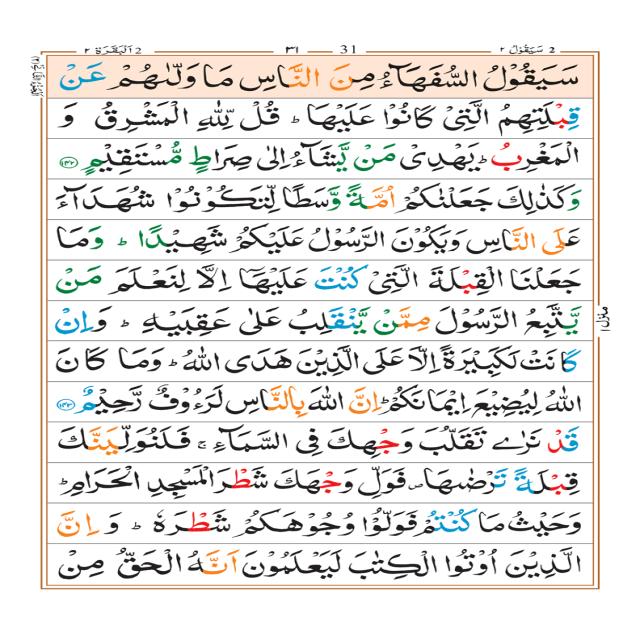 2 اَلْبَقَرَة ٢ ٣١ 31 سَيَقُوْلُ ٢ 2
سَيَقُوْلُ السُّفَهَآءُ مِنَ النَّاسِ مَا وَلّٰىهُمْ عَنْ
قِبْلَتِهِمُ الَّتِىْ كَانُوْا عَلَيْهَا ؕ قُلْ لِّلّٰهِ الْمَشْرِقُ وَ
الْمَغْرِبُ ؕ يَهْدِىْ مَنْ يَّشَآءُ اِلٰى صِرَاطٍ مُّسْتَقِيْمٍ ﴿۱۴۲﴾
وَكَذٰلِكَ جَعَلْنٰكُمْ اُمَّةً وَّسَطًا لِّتَكُوْنُوْا شُهَدَآءَ
عَلَى النَّاسِ وَيَكُوْنَ الرَّسُوْلُ عَلَيْكُمْ شَهِيْدًا ؕ وَمَا
جَعَلْنَا الْقِبْلَةَ الَّتِىْ كُنْتَ عَلَيْهَآ اِلَّا لِنَعْلَمَ مَنْ
يَّتَّبِعُ الرَّسُوْلَ مِمَّنْ يَّنْقَلِبُ عَلٰى عَقِبَيْهِ ؕ وَاِنْ
كَانَتْ لَكَبِيْرَةً اِلَّا عَلَى الَّذِيْنَ هَدَى اللّٰهُ ؕ وَمَا كَانَ
اللّٰهُ لِيُضِيْعَ اِيْمَانَكُمْ ؕ اِنَّ اللّٰهَ بِالنَّاسِ لَرَءُوْفٌ رَّحِيْمٌ ﴿۱۴۳﴾
قَدْ نَرٰى تَقَلُّبَ وَجْهِكَ فِى السَّمَآءِ ۚ فَلَنُوَلِّيَنَّكَ
قِبْلَةً تَرْضٰىهَا ۪ فَوَلِّ وَجْهَكَ شَطْرَ الْمَسْجِدِ الْحَرَامِ ؕ
وَحَيْثُ مَا كُنْتُمْ فَوَلُّوْا وُجُوْهَكُمْ شَطْرَهٗ ؕ وَ اِنَّ
الَّذِيْنَ اُوْتُوا الْكِتٰبَ لَيَعْلَمُوْنَ اَنَّهُ الْحَقُّ مِنْ
منزل ١